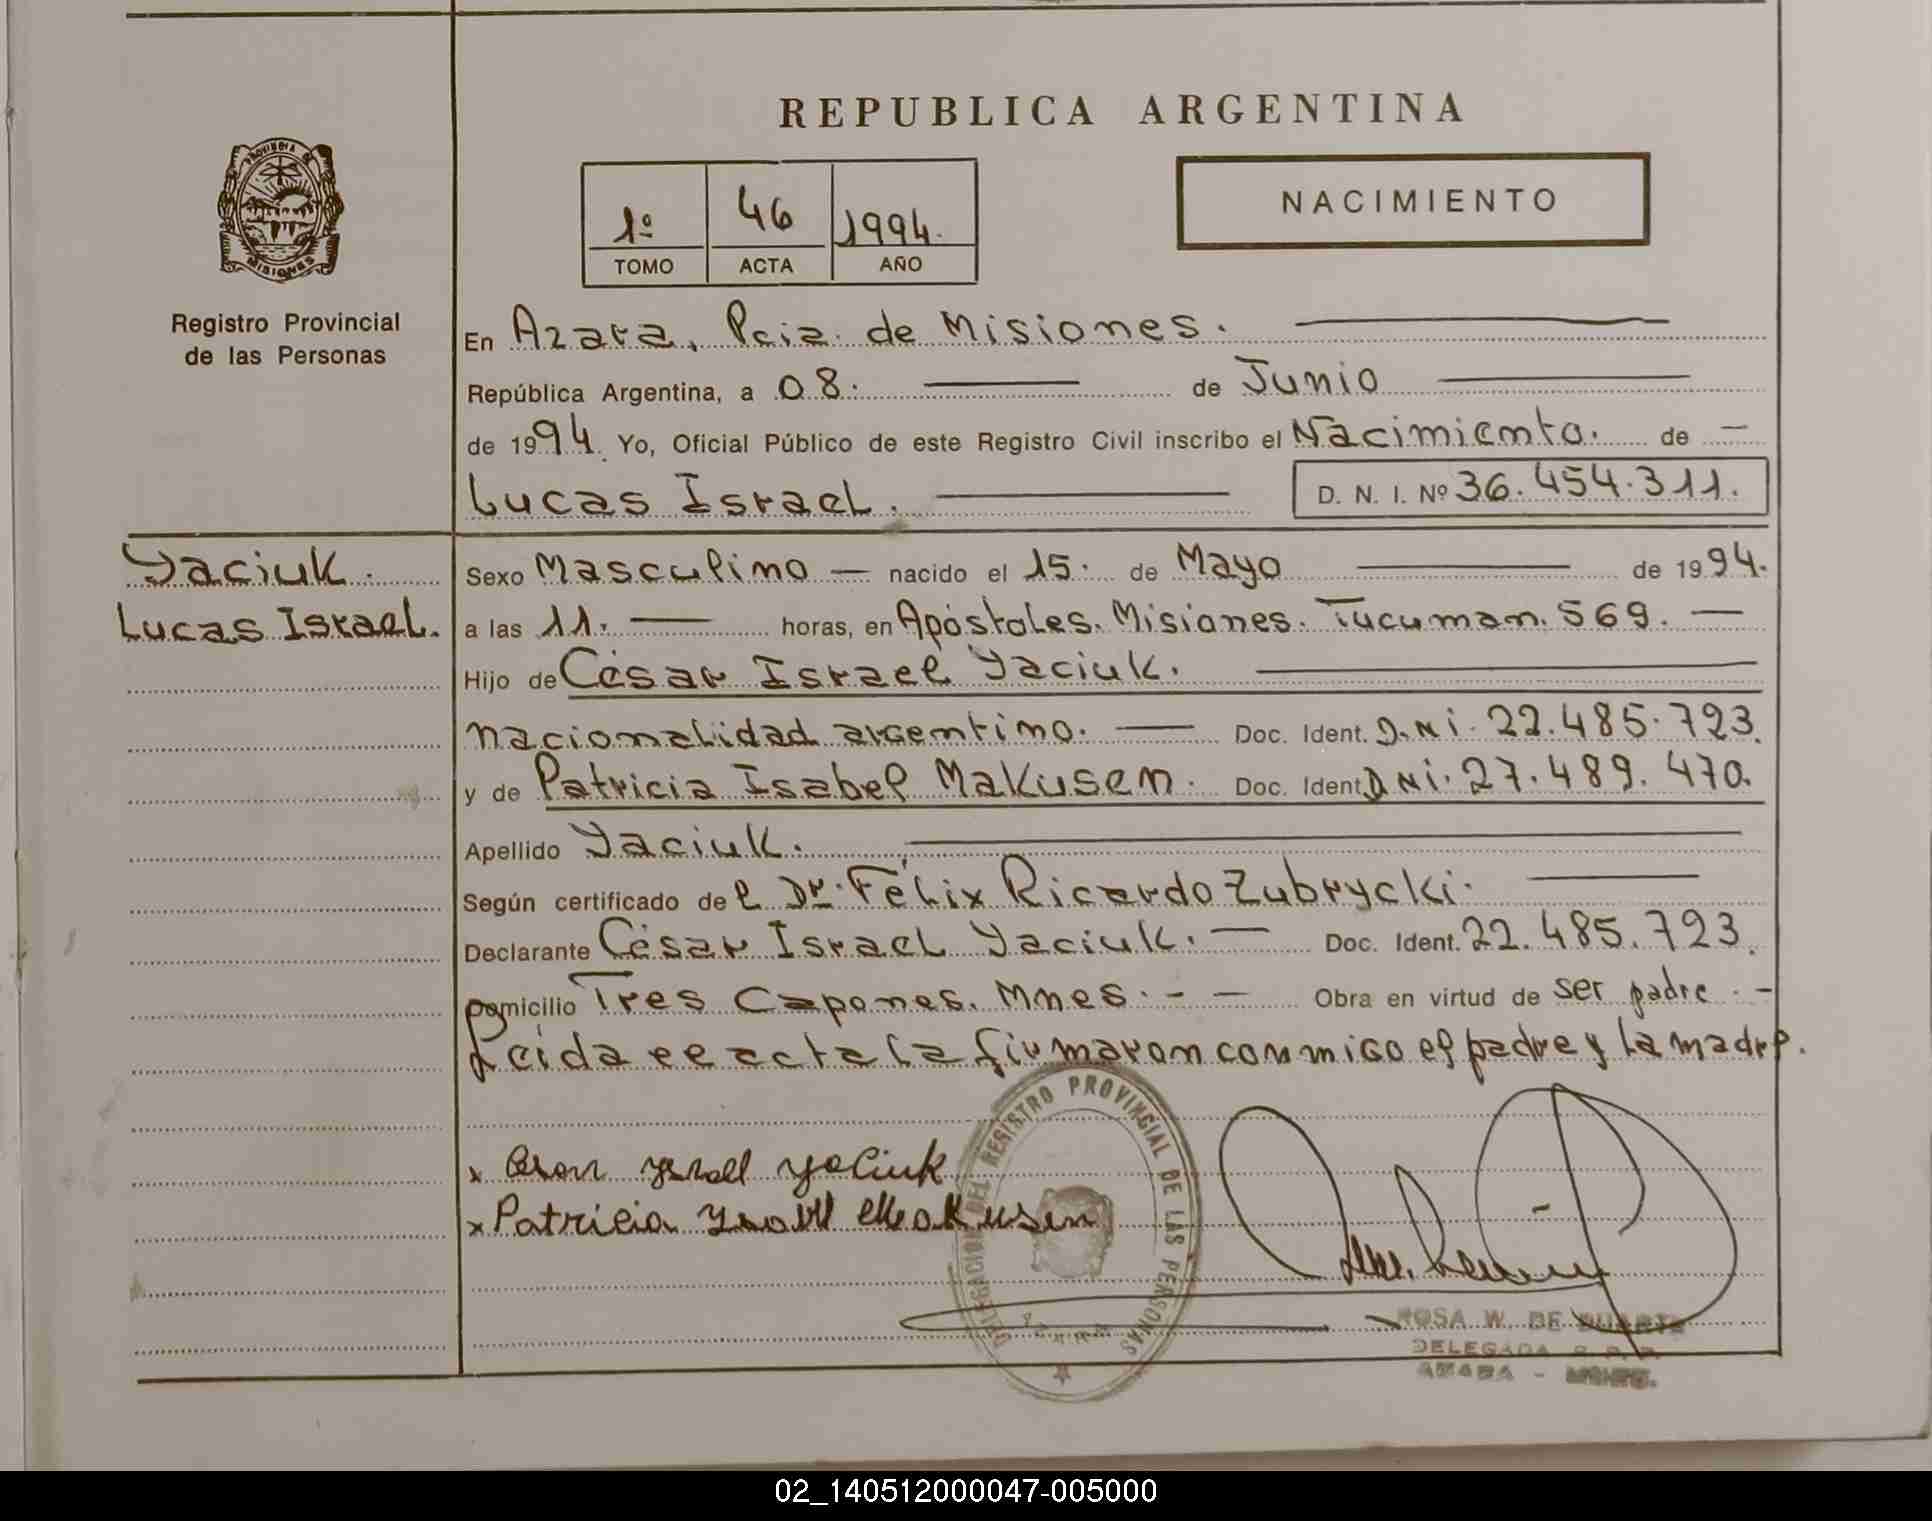 REPUBLICA ARGENTINA
PROVINCIA DE
MISIONES
Registro Provincial
de las Personas
1º 46 1994.
TOMO ACTA AÑO
NACIMIENTO
En Azara, Pcia. de Misiones.
República Argentina, a 08. de Junio
de 1994. Yo, Oficial Público de este Registro Civil inscribo el Nacimiento. de
Lucas Israel. D. N. I. Nº 36.454.311.
Yaciuk.
Lucas Israel.
Sexo Masculino nacido el 15. de Mayo de 1994.
a las 11. horas, en Apóstoles. Misiones. Tucuman. 569.
Hijo de César Israel Yaciuk.
nacionalidad argentino. Doc. Ident. D.Ni. 22.485.723.
y de Patricia Isabel Makusen. Doc. Ident. DNi. 27.489.470.
Apellido Yaciuk.
Según certificado del Dr. Félix Ricardo Zubrycki.
Declarante César Israel Yaciuk. Doc. Ident. 22.485.723.
Domicilio Tres Capones. Mnes. Obra en virtud de ser padre.
Leída el acta la firmaron conmigo el padre y la madre.
x Cesar Ysrael Yaciuk
x Patricia Ysabel Makusen
DELEGACION DEL REGISTRO PROVINCIAL DE LAS PERSONAS
AZARA
ROSA W. DE DUARTE
DELEGADA R. P. P.
AZARA - MNES.
02_140512000047-005000